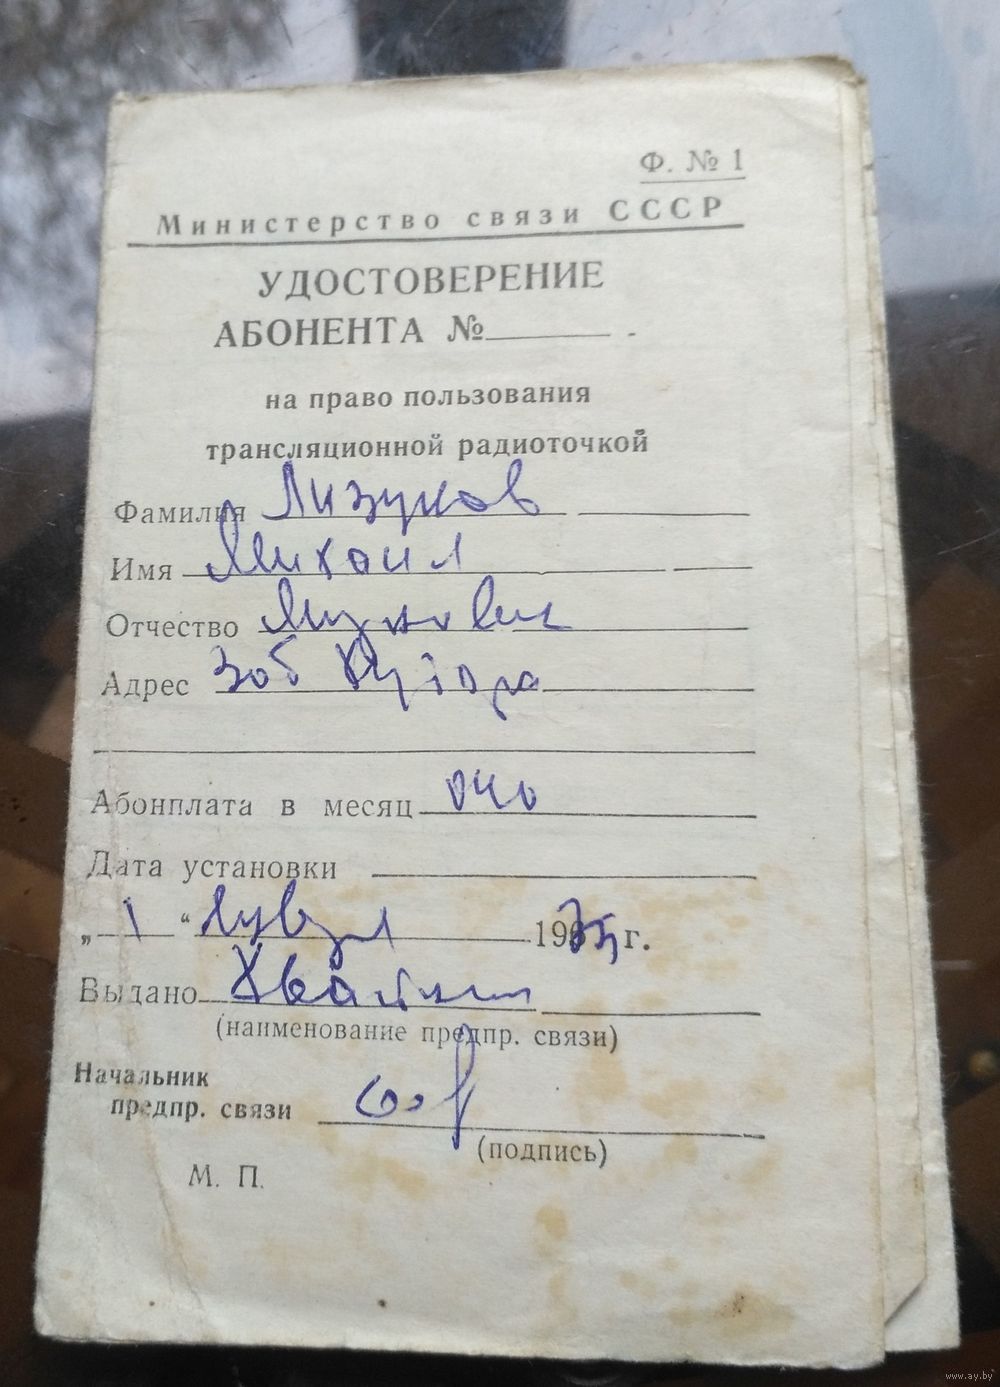 Ф. № 1
Министерство связи СССР
УДОСТОВЕРЕНИЕ
АБОНЕНТА №
на право пользования
трансляционной радиоточкой
Фамилия Лизуков
Имя Михаил
Отчество
Адрес
Абонплата в месяц 040
Дата установки
„ 1 “ 1975 г.
Выдано
(наименование предпр. связи)
Начальник
предпр. связи
(подпись)
М. П.
www.ay.by